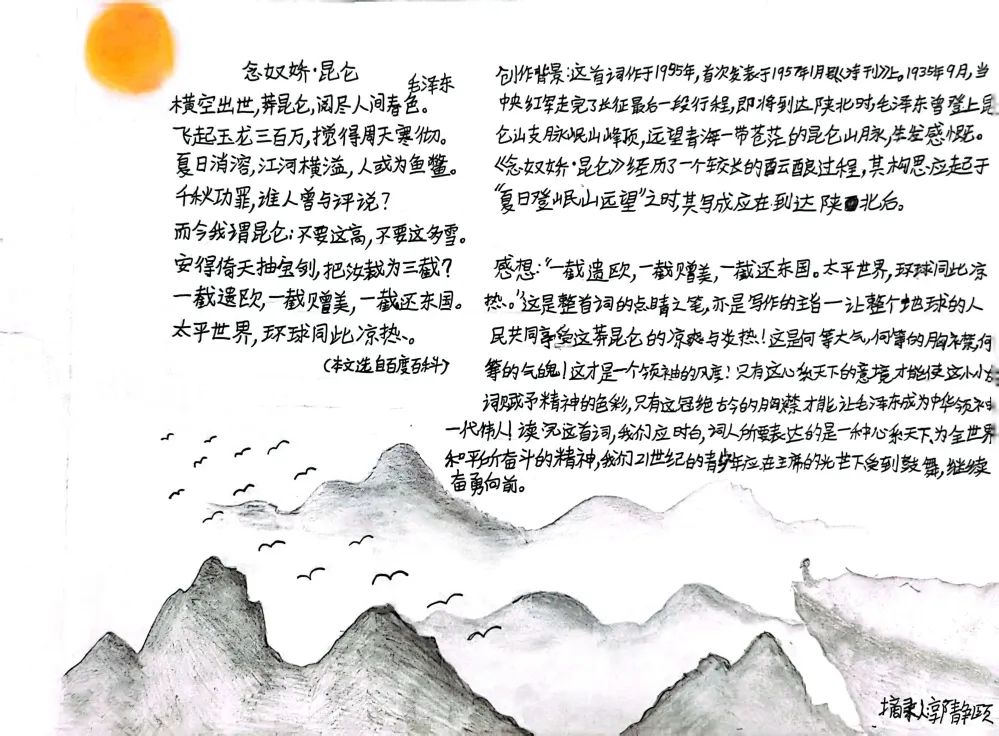 念奴娇·昆仑
毛泽东
横空出世,莽昆仑,阅尽人间春色。
飞起玉龙三百万,搅得周天寒彻。
夏日消溶,江河横溢,人或为鱼鳖。
千秋功罪,谁人曾与评说?
而今我谓昆仑:不要这高,不要这多雪。
安得倚天抽宝剑,把汝裁为三截?
一截遗欧,一截赠美,一截还东国。
太平世界,环球同此凉热。
(本文选自百度百科)
创作背景:这首词作于1935年,首次发表于1957年1月《诗刊》上。1935年9月,当
中央红军走完了长征最后一段行程,即将到达陕北时毛泽东曾登上昆
仑山支脉岷山峰顶,远望青海一带苍茫的昆仑山脉,生发感慨。
《念奴娇·昆仑》经历了一个较长的酝酿过程,其构思应起于
“夏日登岷山远望”之时,其写成应在到达陕北后。
感想:“一截遗欧,一截赠美,一截还东国。太平世界,环球同此凉
热。”这是整首词的点睛之笔,亦是写作的主旨一让整个地球的人
民共同享受这莽昆仑的凉爽与炎热!这是何等大气,何等的胸襟,何
等的气魄!这才是一个领袖的风度!只有这心系天下的意境才能使这小小
词赋予精神的色彩,只有这冠绝古今的胸襟才能让毛泽东成为中华领袖
一代伟人!读完这首词,我们应明白,词人所要表达的是一种心系天下、为全世界
和平所奋斗的精神,我们21世纪的青少年应在主席的光芒下受到鼓舞,继续
奋勇向前。
摘录人郭静颐